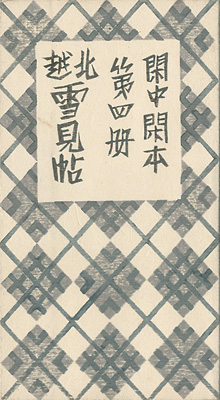 閑中閑本
第四册
北越
雪見帖